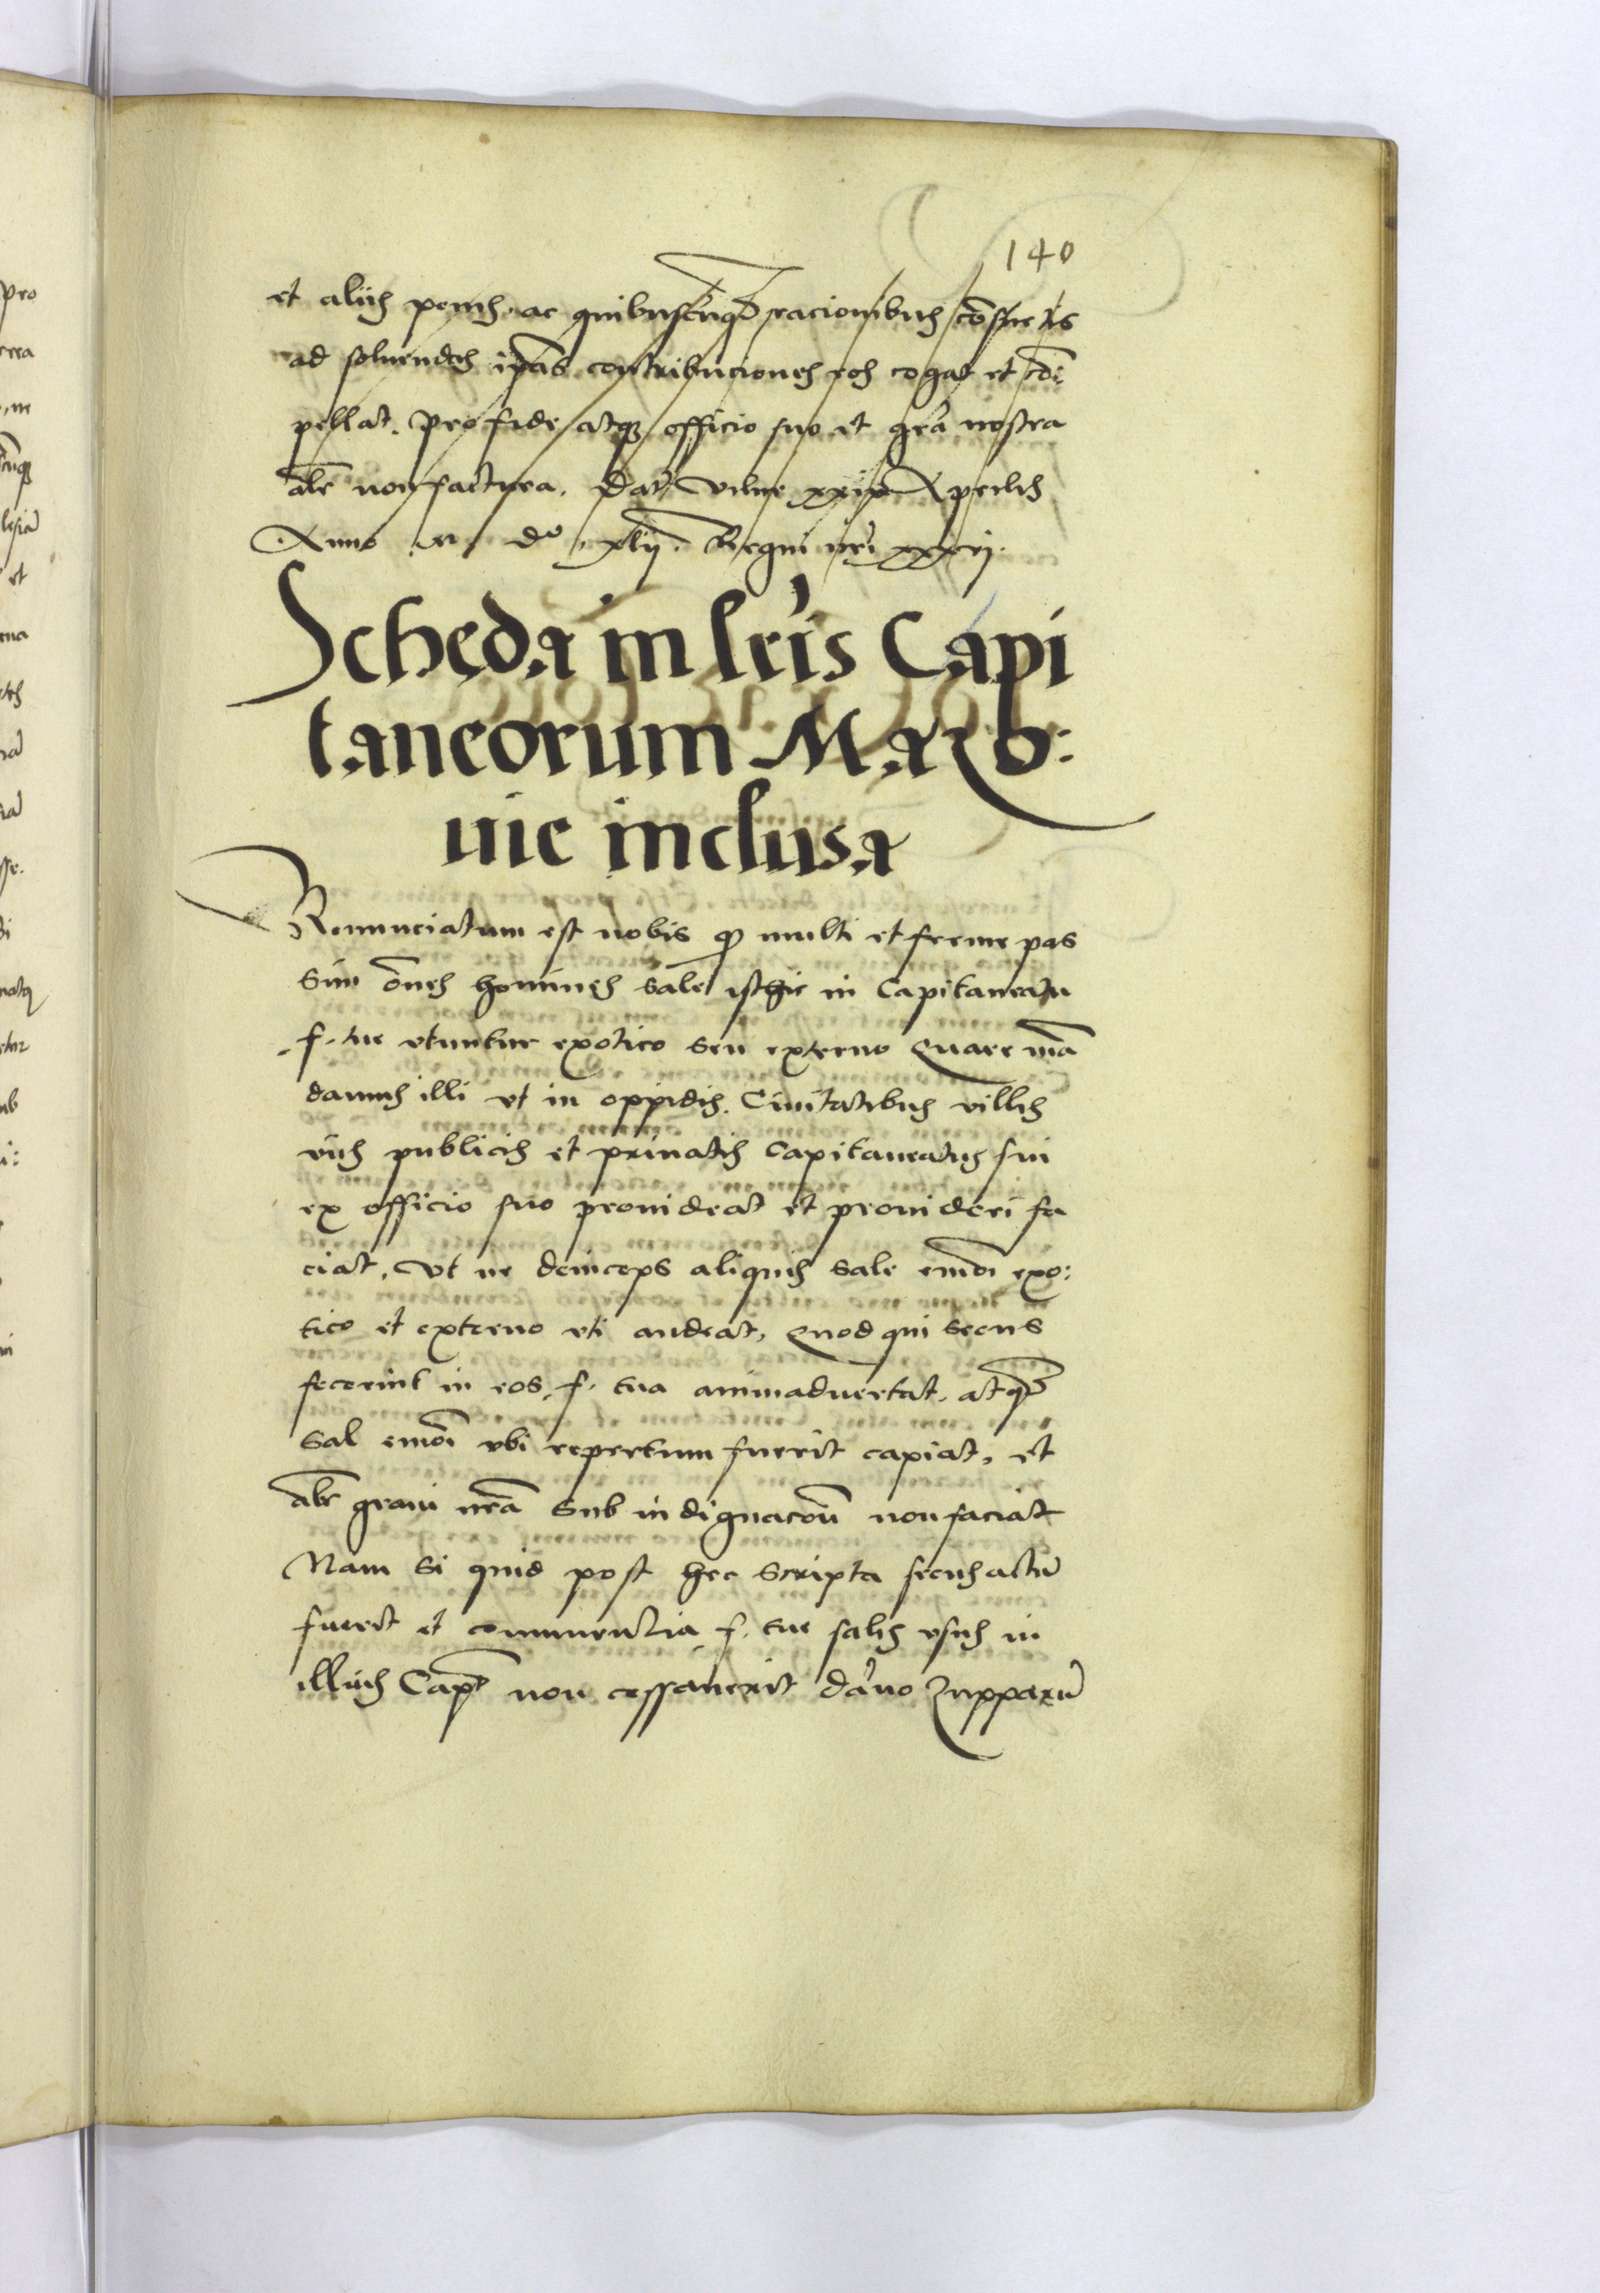 140
et aliis penis. ac quibuscũqȝ racionibus cõsuetis
ad soluendas ip̃as contribuciones eos cogat et cõ:
pellat. Pro fide atqȝ officio suo et grã nostra
alr̃ non factura. Dat̃ Vilne xxix Aprilis
Anno M. d° xlij. Regni nr̃i xxxvj.
Scheda in lr̃is Capi
taneorum Mazo:
uie inclusa
Renunciatum est nobis qȝ multi et ferme pas
sim õnes homines sale isthic in Capitaneatu
f. tue vtuntur exotico seu externo Quare mã
damus illi vt in oppidis. Ciuitatibus villis
viis publicis et priuatis Capitaneatus sui
ex officio suo prouideat et prouideri fa
ciat. Vt ne deinceps aliquis sale em̃oi exo:
tico et externo vti audeat, Quod qui secus
fecerint in eos. f. tua animaduertat. atqȝ
Sal em̃oi vbi repertum fuerit capiat, et
alr̃ graui nr̃a sub indignacoñ non faciat
Nam si quid post hec scripta secus actũ
fuerit et conniuentia f. tue salis vsus in
illius Cap̃t non cessauerit dãno Zupparũ